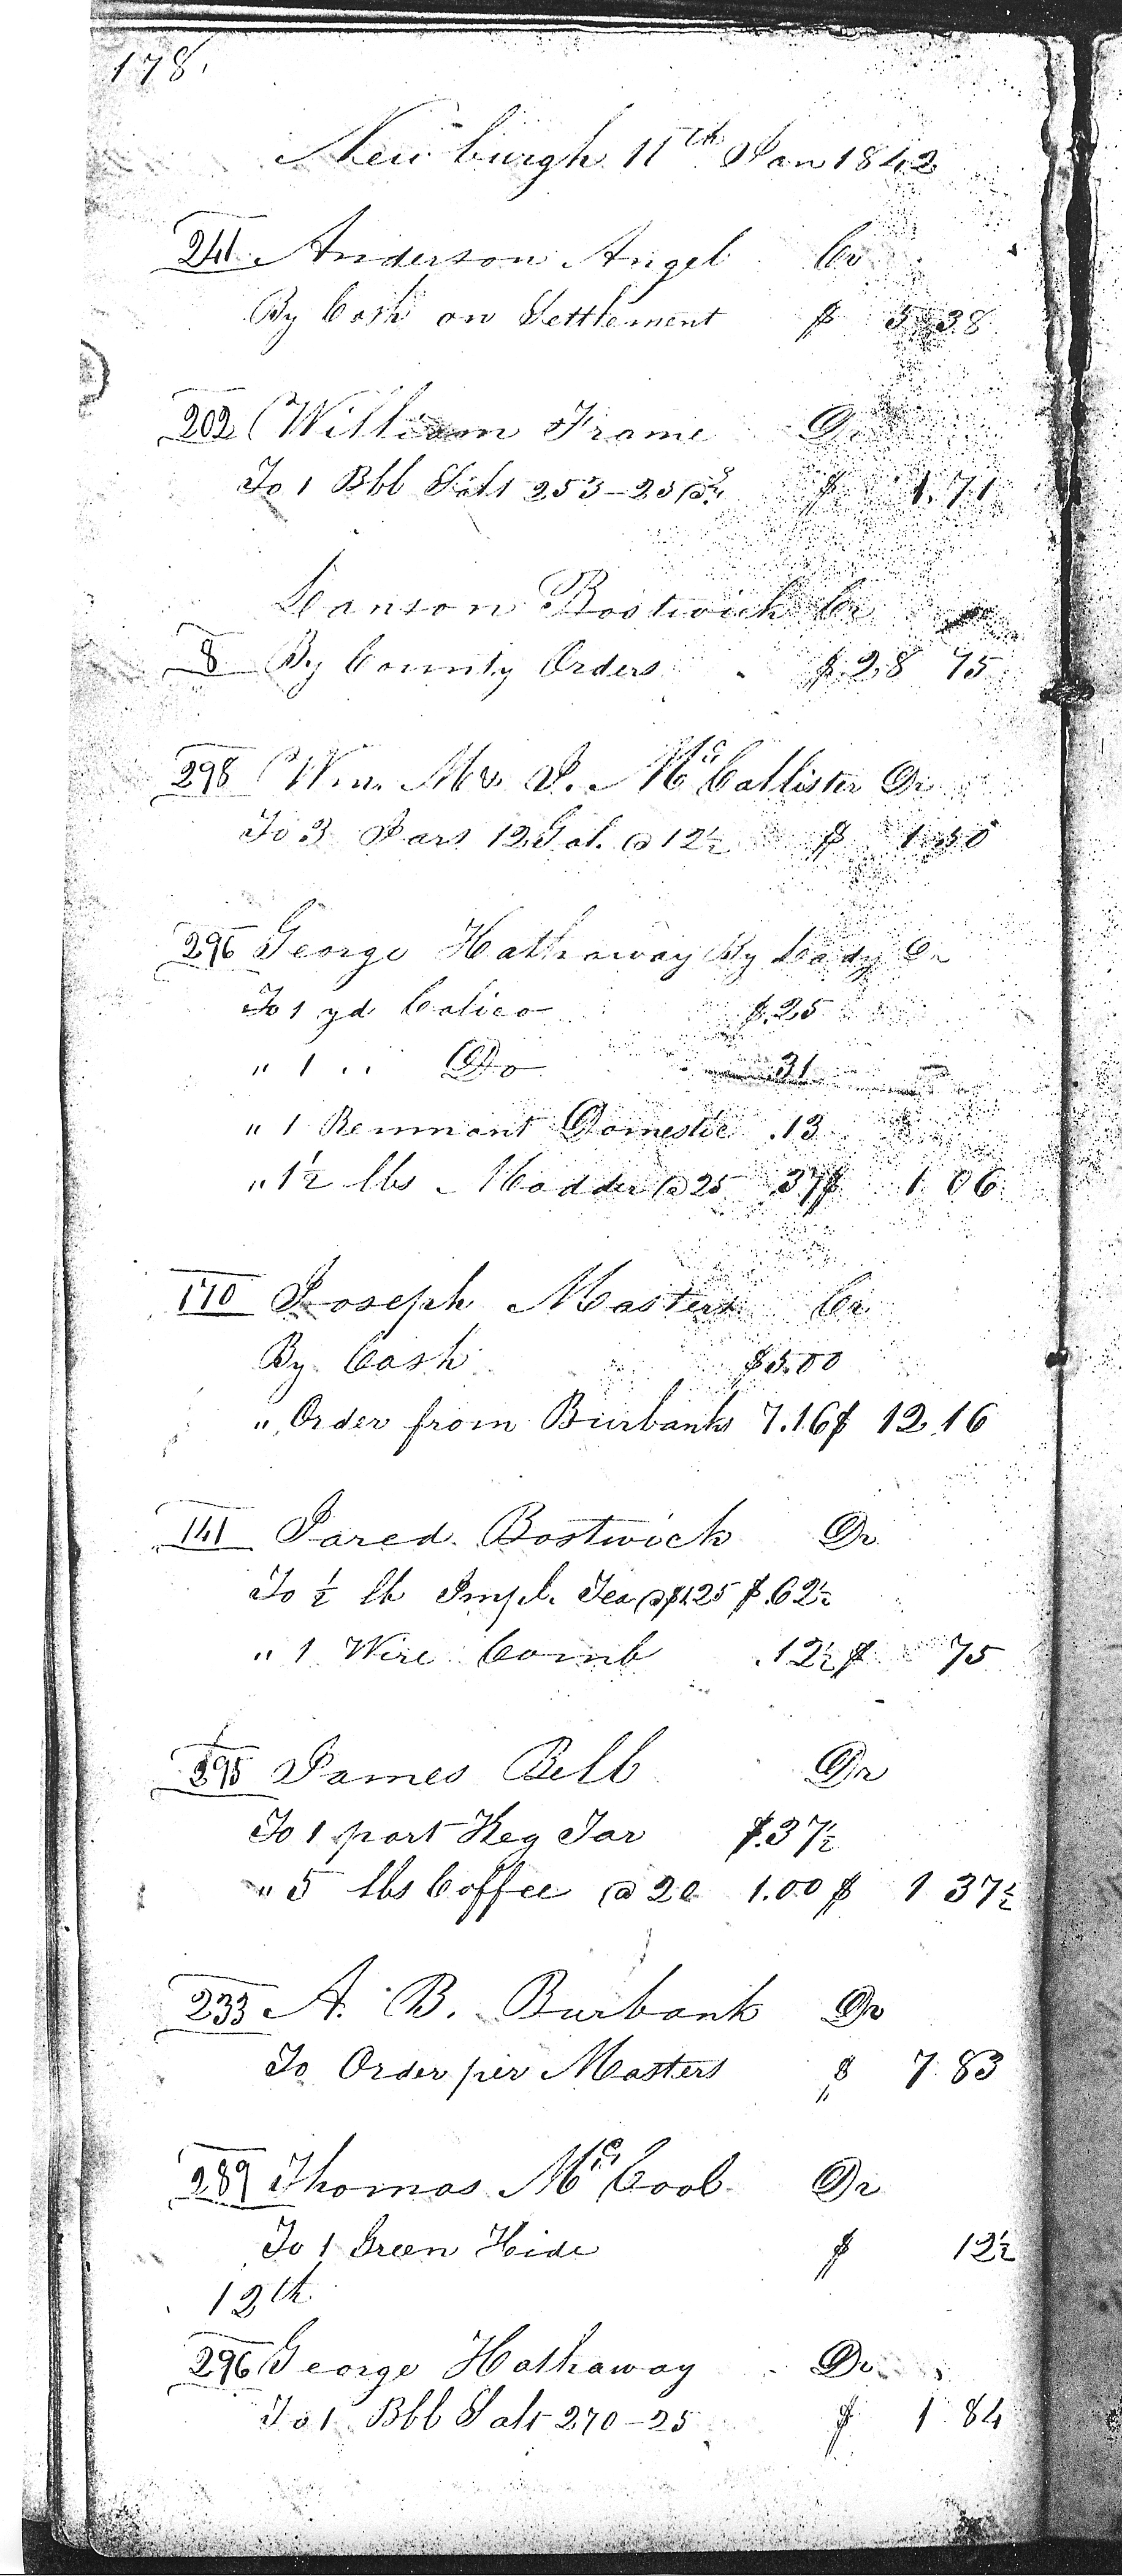 178.
Newburgh 11th Jan 1842
241 Anderson Angel Cr
By Cash on Settlement $ 5.38
202 William Frame Dr
To 1 Bbl Salt 253-25 @ ¾ $ 1.71
Lanson Bostwick Cr
8 By County Orders $ 28 75
298 Wm. Mc. J. McCallister Dr
To 3 Jars 12 Gal. @ 12½ $ 1.50
296 George Hathaway By Lady Dr
To 1 yd Calico $.25
" 1 " Do 31
" 1 Remnant Domestic .13
" 1½ lbs Madder @ 25 .37 $ 1 06
170 Joseph Masters Cr
By Cash $5.00
" Order from Burbanks 7.16 $ 12.16
141 Jared Bostwick Dr
To ½ lb Impl. Tea @ $1.25 $.62½
" 1 Wire Comb .12½ $ 75
295 James Bell Dr
To 1 part Keg Tar $.37½
" 5 lbs Coffee @ 20 1.00 $ 1 37½
233 A. B. Burbank Dr
To Order per Masters $ 7.83
289 Thomas McCool Dr
To 1 Green Hide $ 12½
12th
296 George Hathaway Dr
To 1 Bbl Salt 270-25 $ 1.84